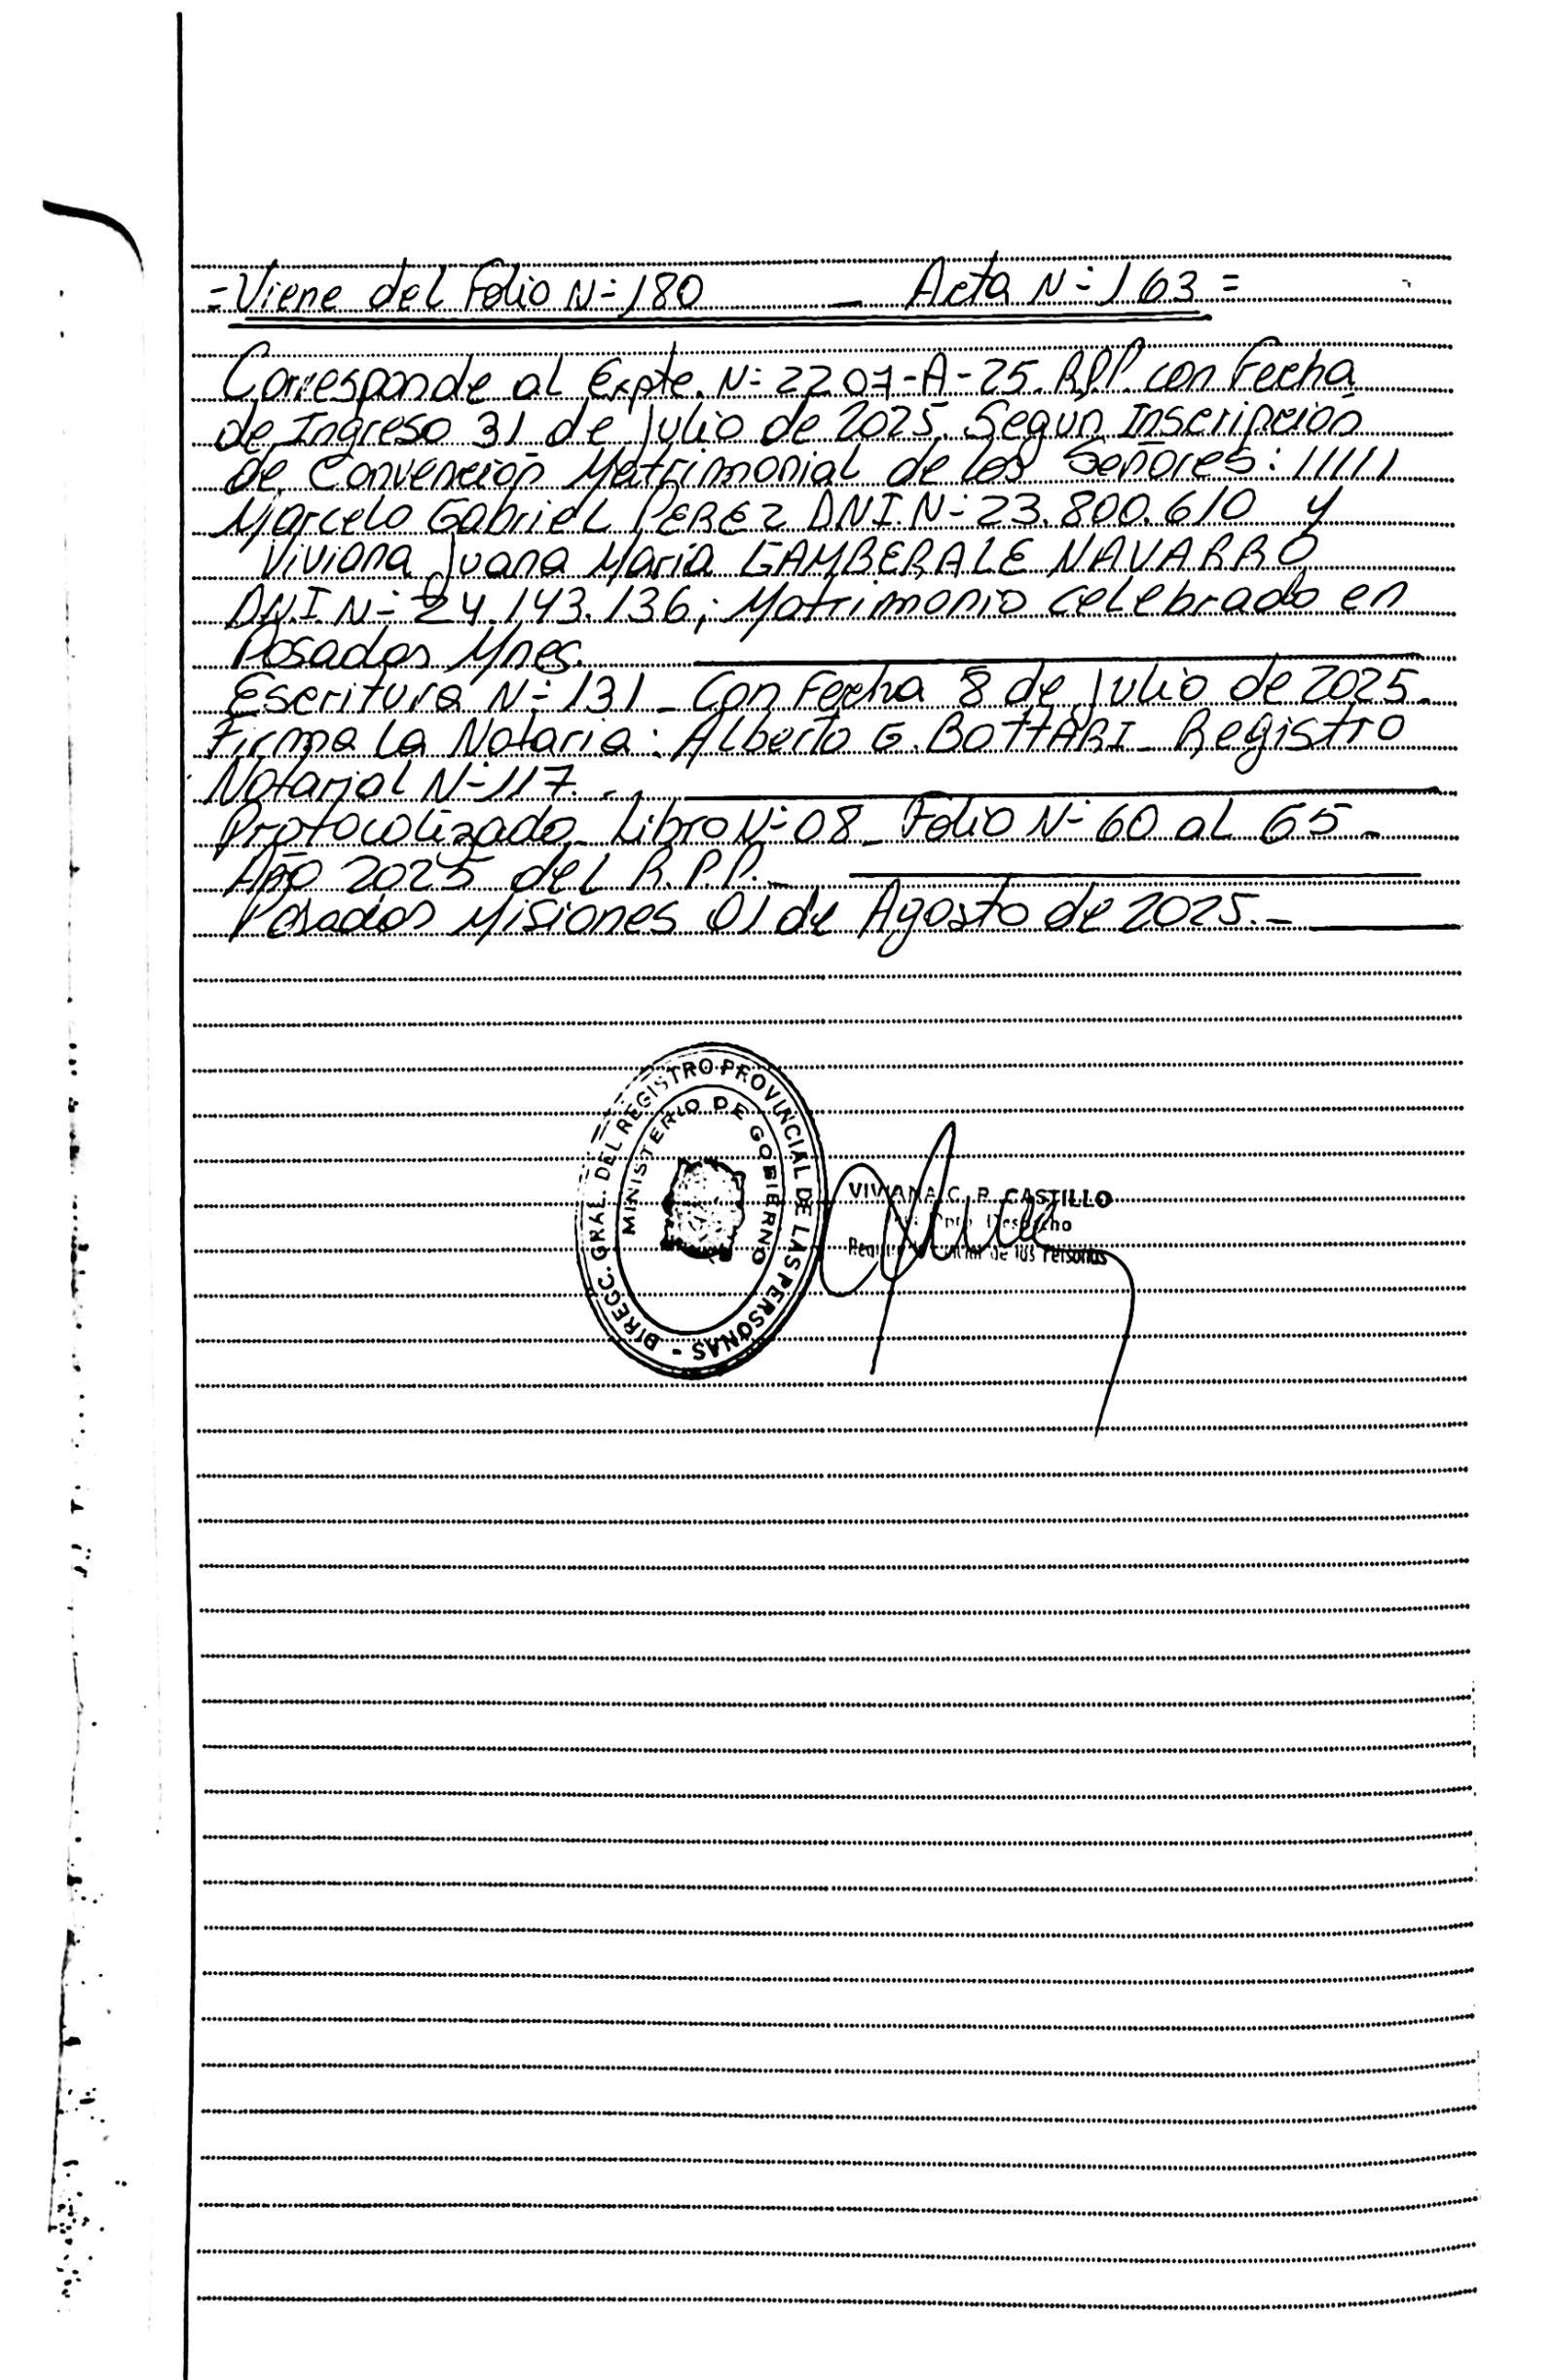 =Viene del Folio N-180 _ Acta N-163=
Corresponde al Expte. N-2207-A-25. R.P.P. con Fecha
de Ingreso 31 de Julio de 2025. Segun Inscripción
de Convención Matrimonial de los Señores: 11111
Marcelo Gabriel PEREZ DNI.N-23.800.610 y
Viviana Juana María GAMBERALE NAVARRO
D.N.I N-24.143.136; Matrimonio celebrado en
Posadas Mnes.
Escritura N-131_ Con Fecha 8 de Julio de 2025.
Firma La Notaria: Alberto G. BOTTARI_ Registro
Notarial N-117.-
Protocolizado_ Libro N-08_ Folio N-60 al 65-
Año 2025 del R.P.P._
Posadas Misiones 01 de Agosto de 2025.-
DIRECC. GRAL. DEL REGISTRO PROVINCIAL DE LAS PERSONAS -
MINISTERIO DE GOBIERNO
VIVIANA C. R. CASTILLO
Dpto. Despacho
de las Personas